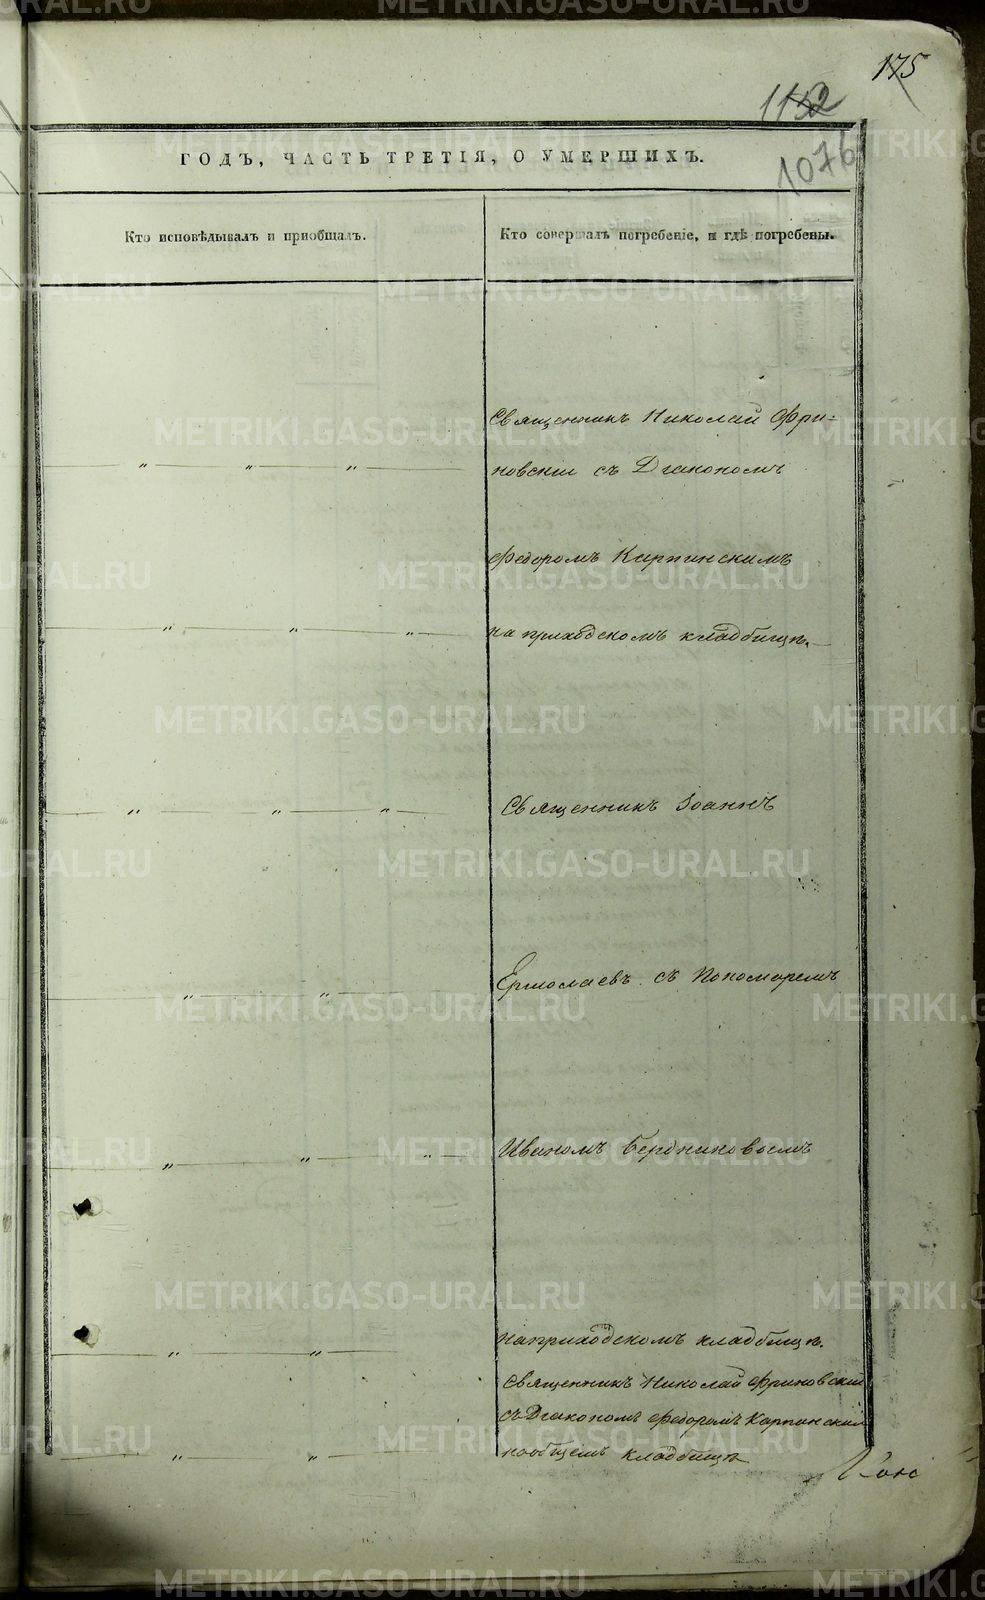 175
1152
1076
ГОДЪ, ЧАСТЬ ТРЕТІЯ, О УМЕРШИХЪ.
Кто исповѣдывалъ и приобщалъ.
Кто совершалъ погребеніе, и гдѣ погребены.
Священникъ Николай Фри-
новскій съ Діакономъ
Федоромъ Карпинскимъ
на приходскомъ кладбищѣ.
Священникъ Іоаннъ
Ермолаевъ съ Пономаремъ
Иваномъ Бердниковымъ
на приходскомъ кладбищѣ.
Священникъ Николай Фриновскій
съ Діакономъ Федоромъ Карпинским
на общемъ кладбищѣ
METRIKI.GASO-URAL.RU